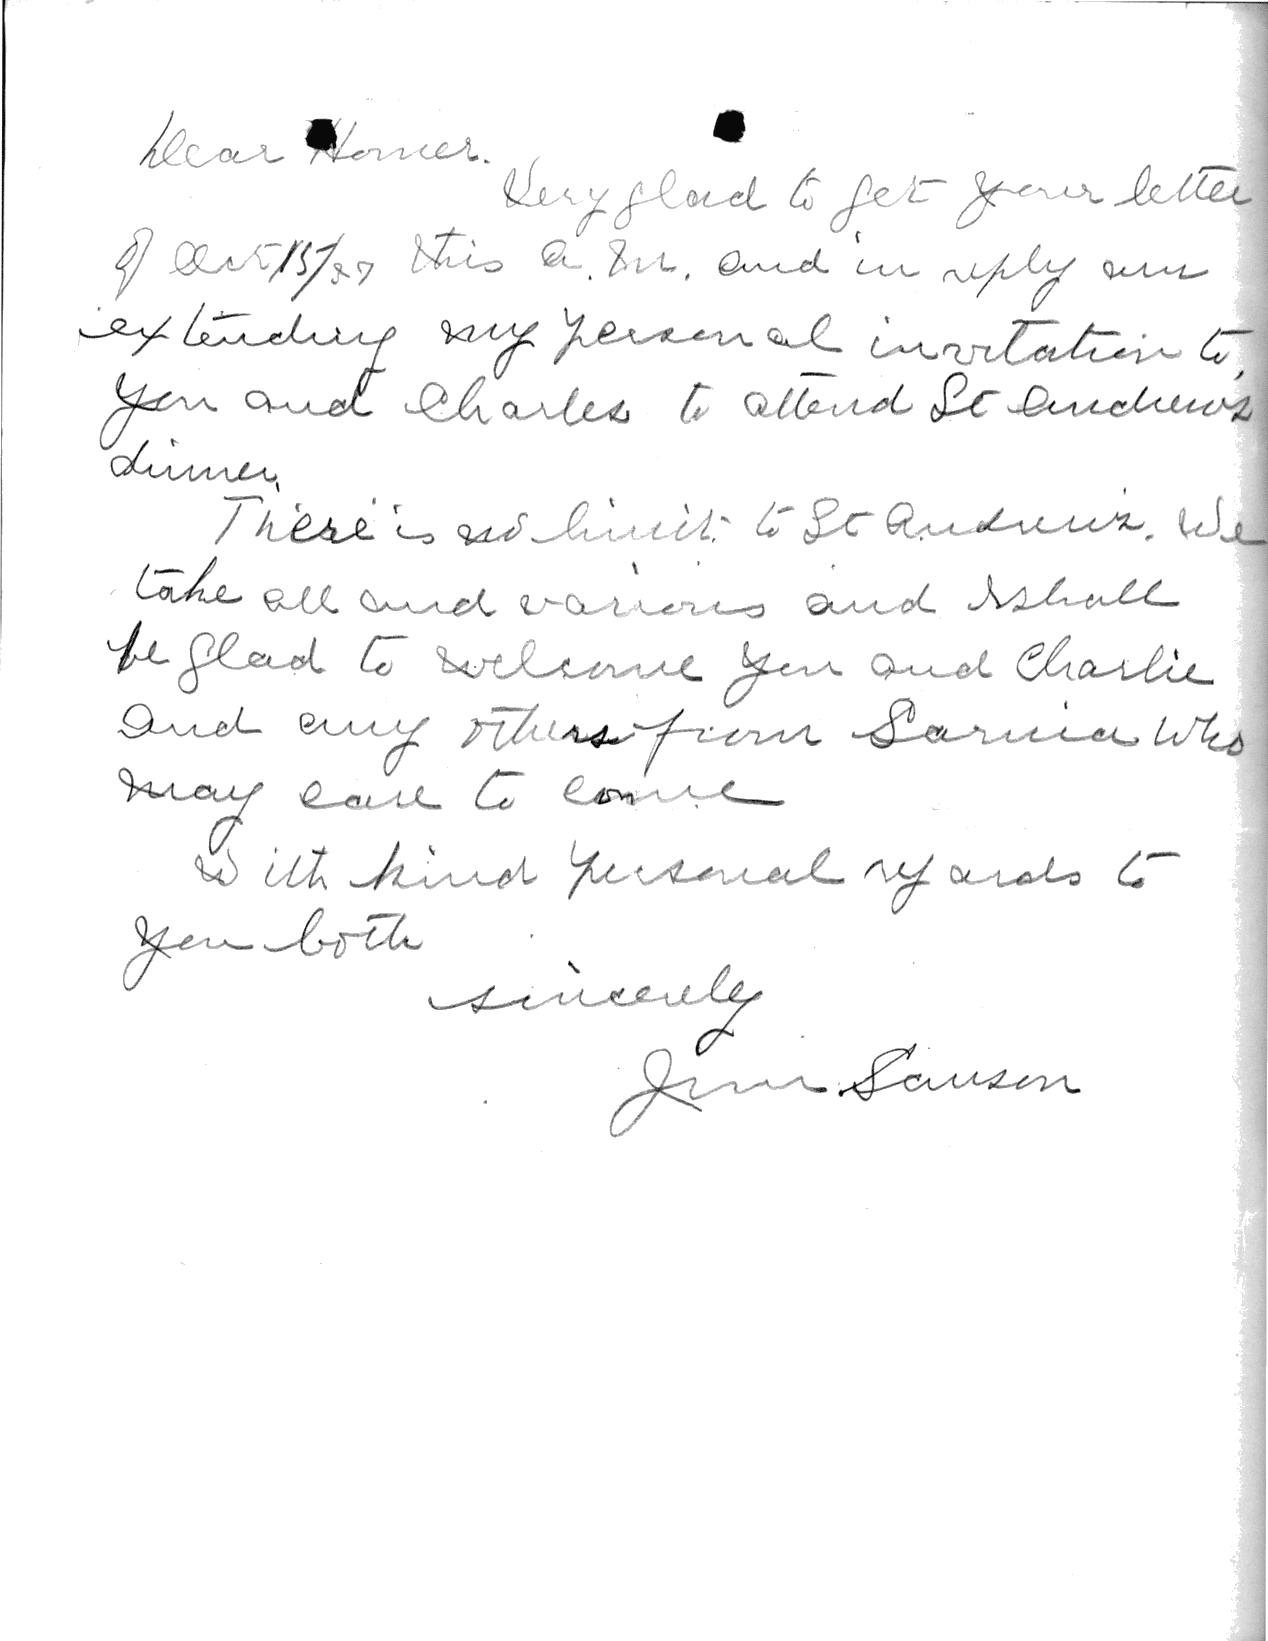 Dear Homer.
Very glad to get your letter
of Oct 15/37 this a.m. and in reply am
extending my personal invitation to
you and Charles to attend St Andrew's
dinner.
There is no limit to St Andrew's. We
take all and various and I shall
be glad to welcome you and Charlie
and any others from Sarnia who
may care to come
With kind personal regards to
you both
sincerely
Jim Sanson